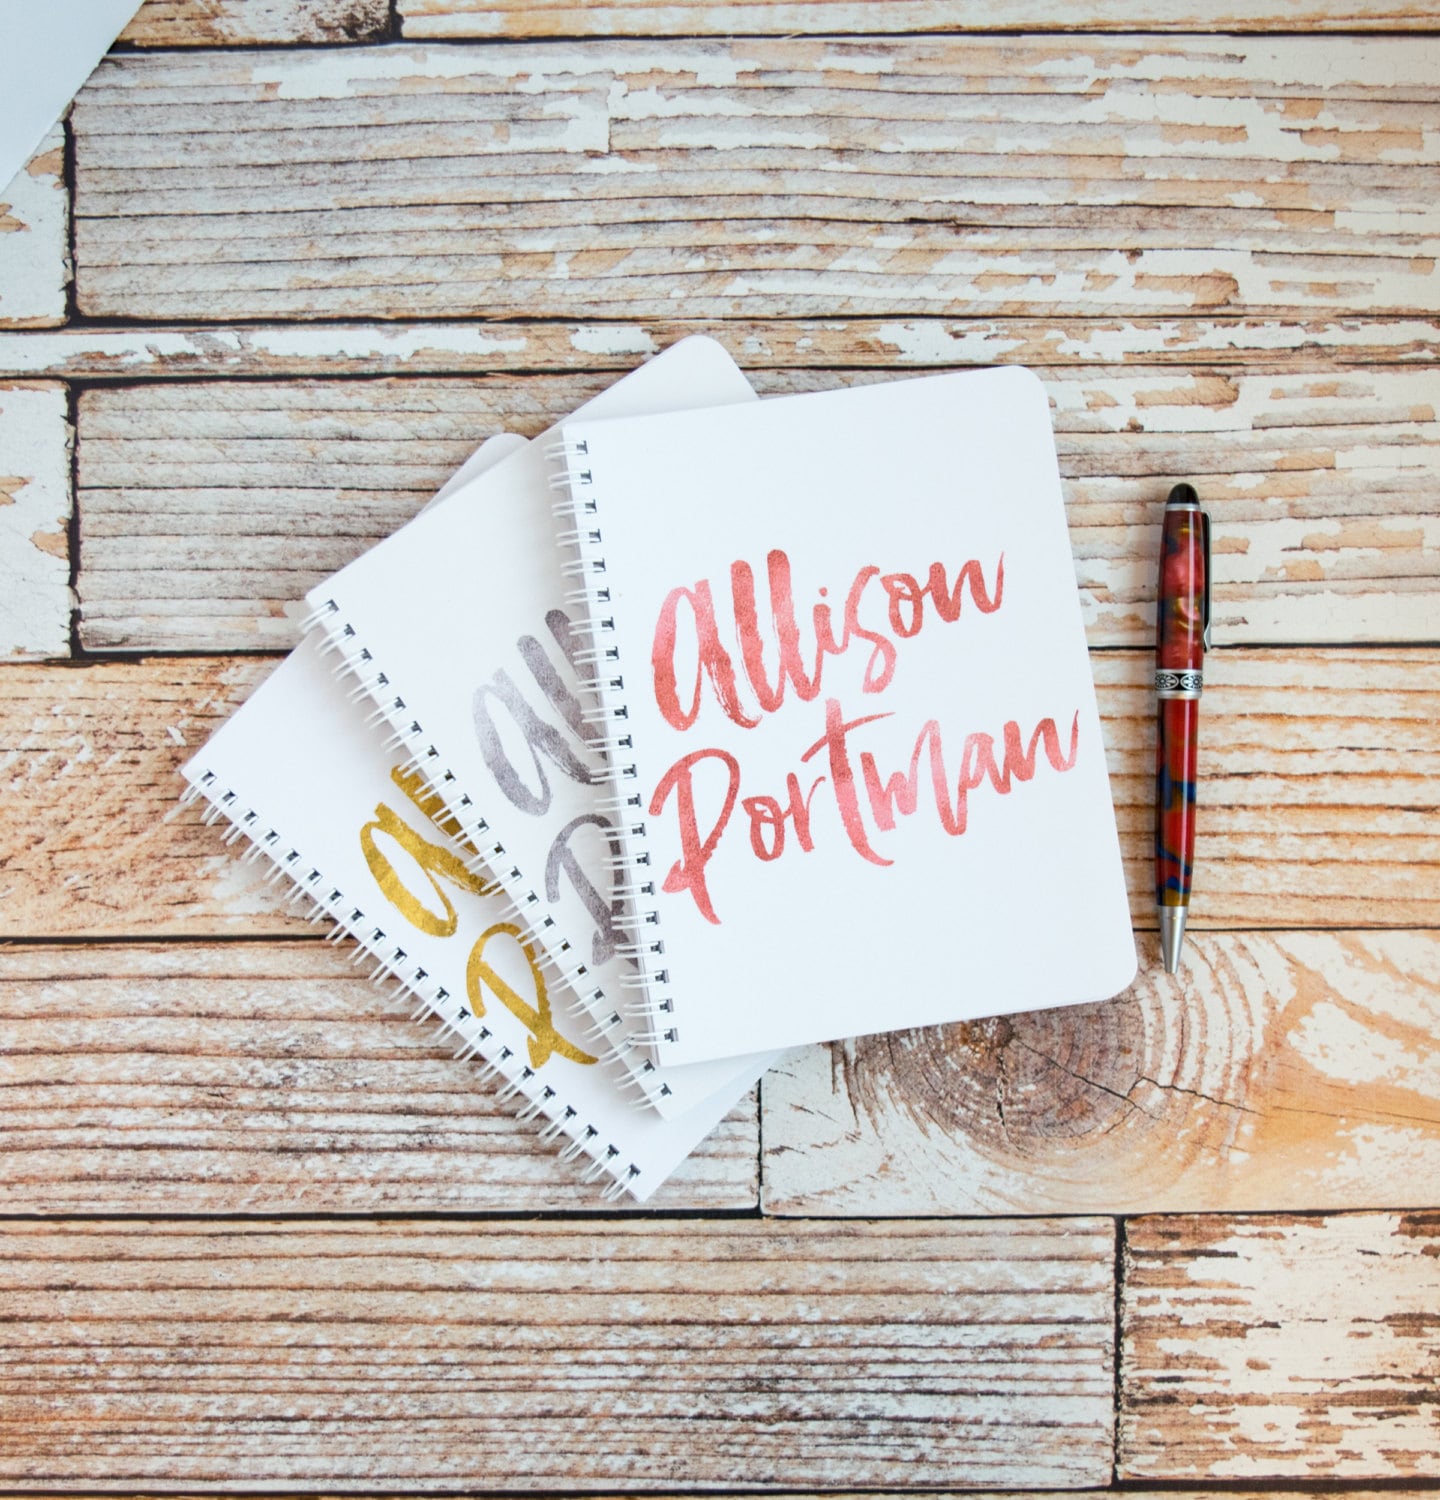 Allison
Portman
All
P
A
P